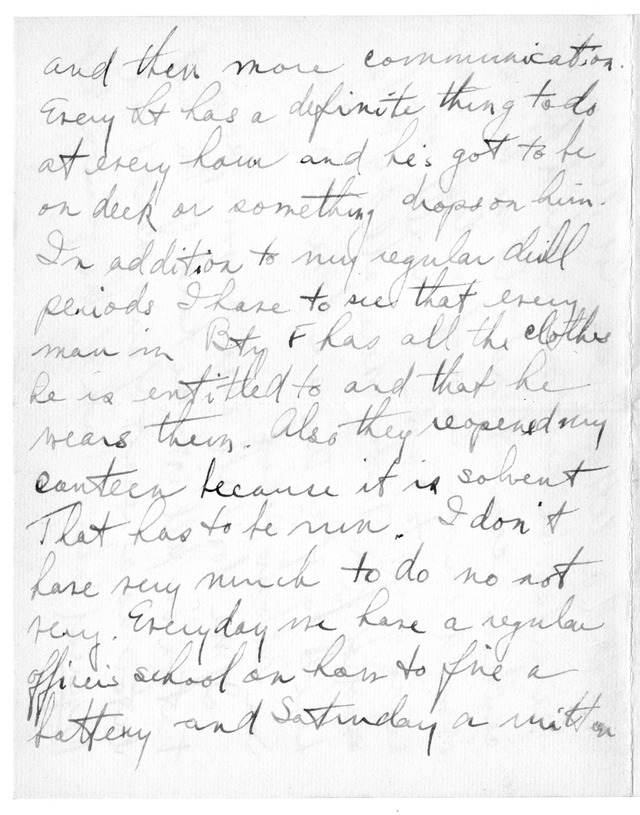 and then more communication.
Every Lt has a definite thing to do
at every hour and he's got to be
on deck or something drops on him.
In addition to my regular drill
periods I have to see that every
man in Bty F has all the clothes
he is entitled to and that he
wears them. Also they reopened my
canteen because it is solvent
That has to be run. I don't
have very much to do no not
very. Everyday we have a regular
officers school on how to fire a
battery and Saturday a written